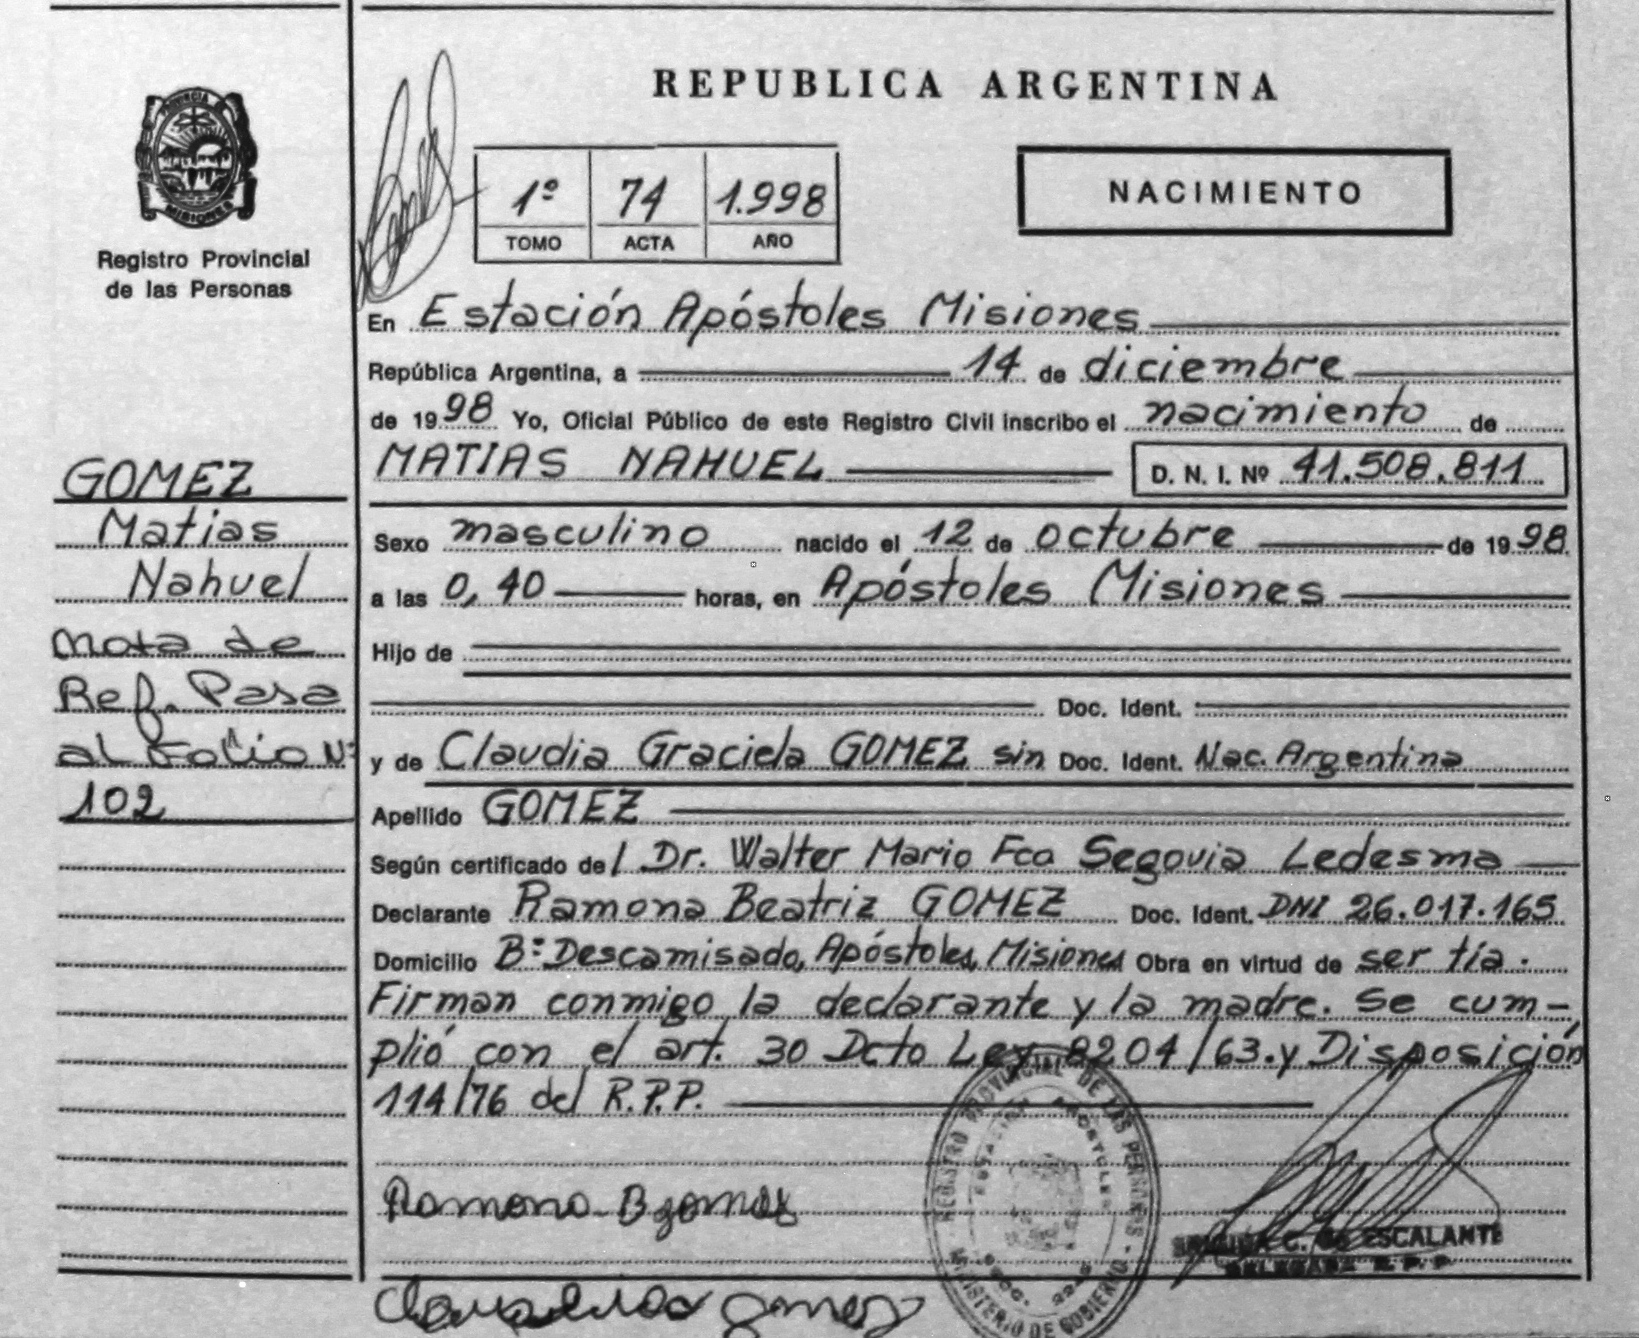 PROVINCIA DE
MISIONES
Registro Provincial
de las Personas
GOMEZ
Matias
Nahuel
Nota de
Ref. Pasa
al Folio Nº
102
REPUBLICA ARGENTINA
1º 74 1.998
TOMO ACTA AÑO
NACIMIENTO
En Estación Apóstoles Misiones
República Argentina, a 14 de diciembre
de 1998 Yo, Oficial Público de este Registro Civil inscribo el nacimiento de
MATIAS NAHUEL D. N. I. Nº 41.508.811
Sexo masculino nacido el 12 de octubre de 1998
a las 0,40 horas, en Apóstoles Misiones
Hijo de
Doc. Ident.
y de Claudia Graciela GOMEZ sin Doc. Ident. Nac. Argentina
Apellido GOMEZ
Según certificado de/ Dr. Walter Mario Fco Segovia Ledesma
Declarante Ramona Beatriz GOMEZ Doc. Ident. DNI 26.017.165
Domicilio Bº Descamisado, Apóstoles, Misiones Obra en virtud de ser tía.
Firman conmigo la declarante y la madre. Se cum-
plió con el art. 30 Dcto Ley 8204/63.y Disposición
114/76 del R.P.P.
Ramona B gomez
REGISTRO PROVINCIAL DE LAS PERSONAS
ESTACION APOSTOLES
MINISTERIO DE GOBIERNO
C. de ESCALANTE
DELEGADA R. P. P.
gomez